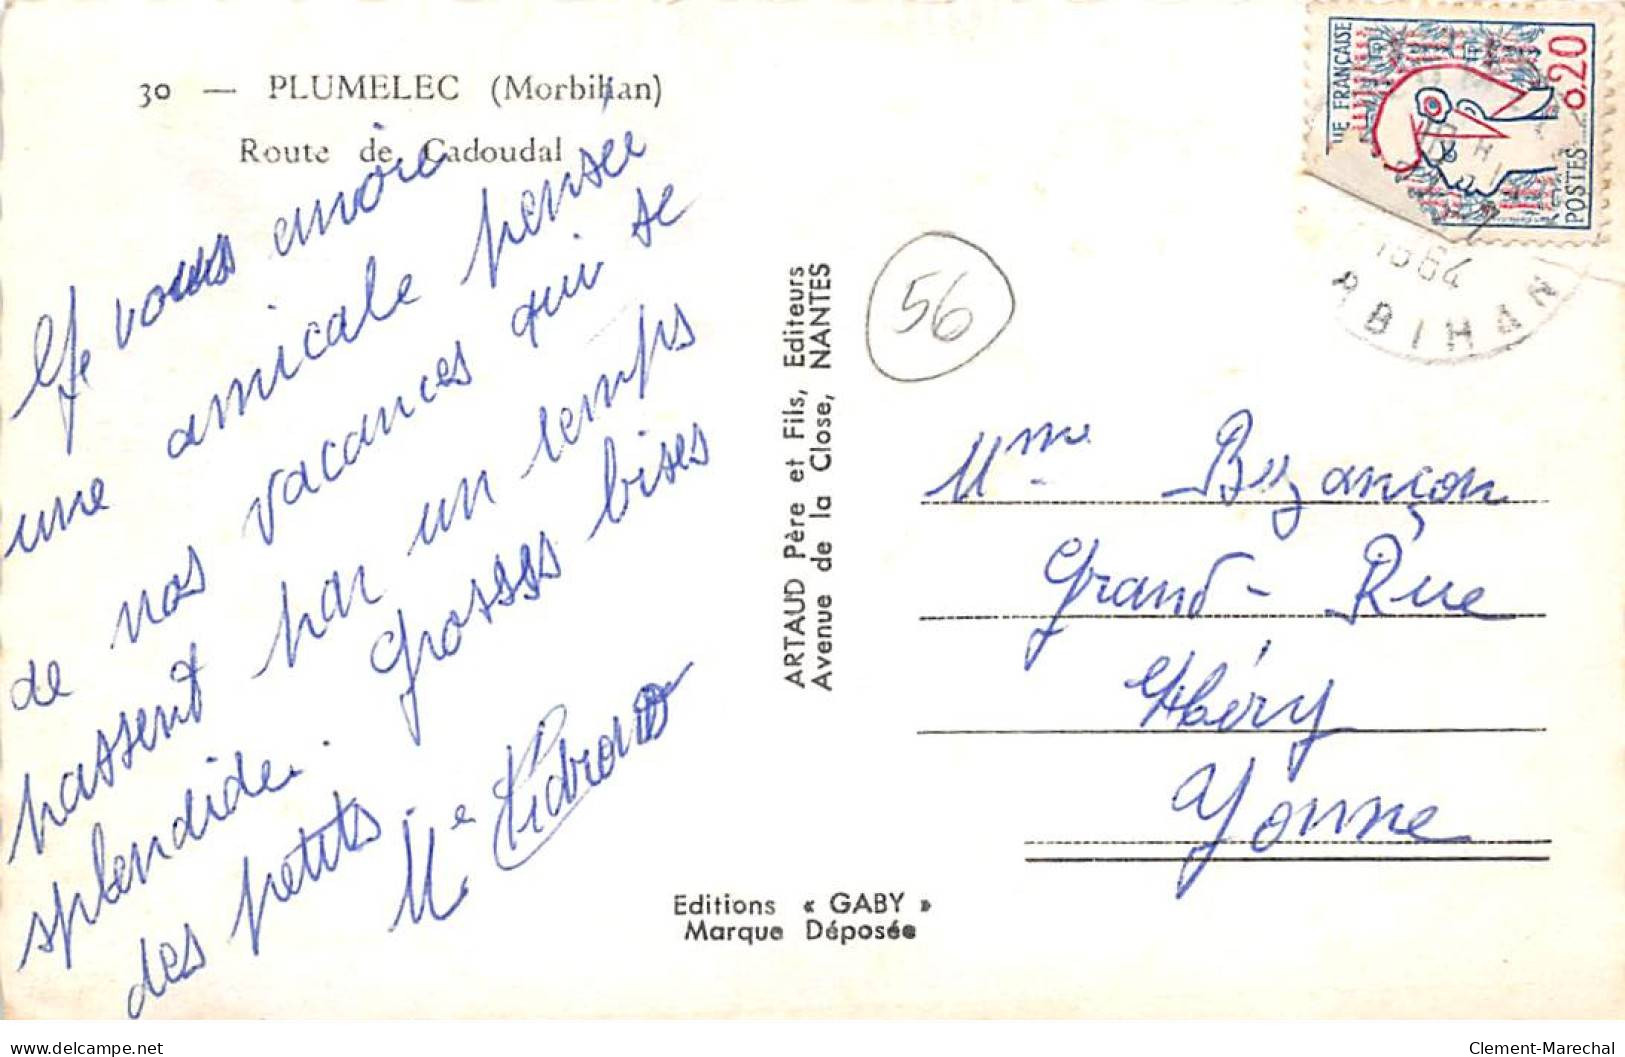 30 — PLUMELEC (Morbihan)
Route de Cadoudal
Je vous envoie
une amicale pensée
de nos vacances qui se
passent par un temps
splendide. Grosses bises
des petits.
Mme
ARTAUD Père et Fils, Editeurs
Avenue de la Close, NANTES
Editions « GABY »
Marque Déposée
56
UE FRANÇAISE
0,20
POSTES
1964
RBIHAN
Mme Bezançon
Grand-Rue
Héry
Yonne
delcampe.net
Clement-Marechal